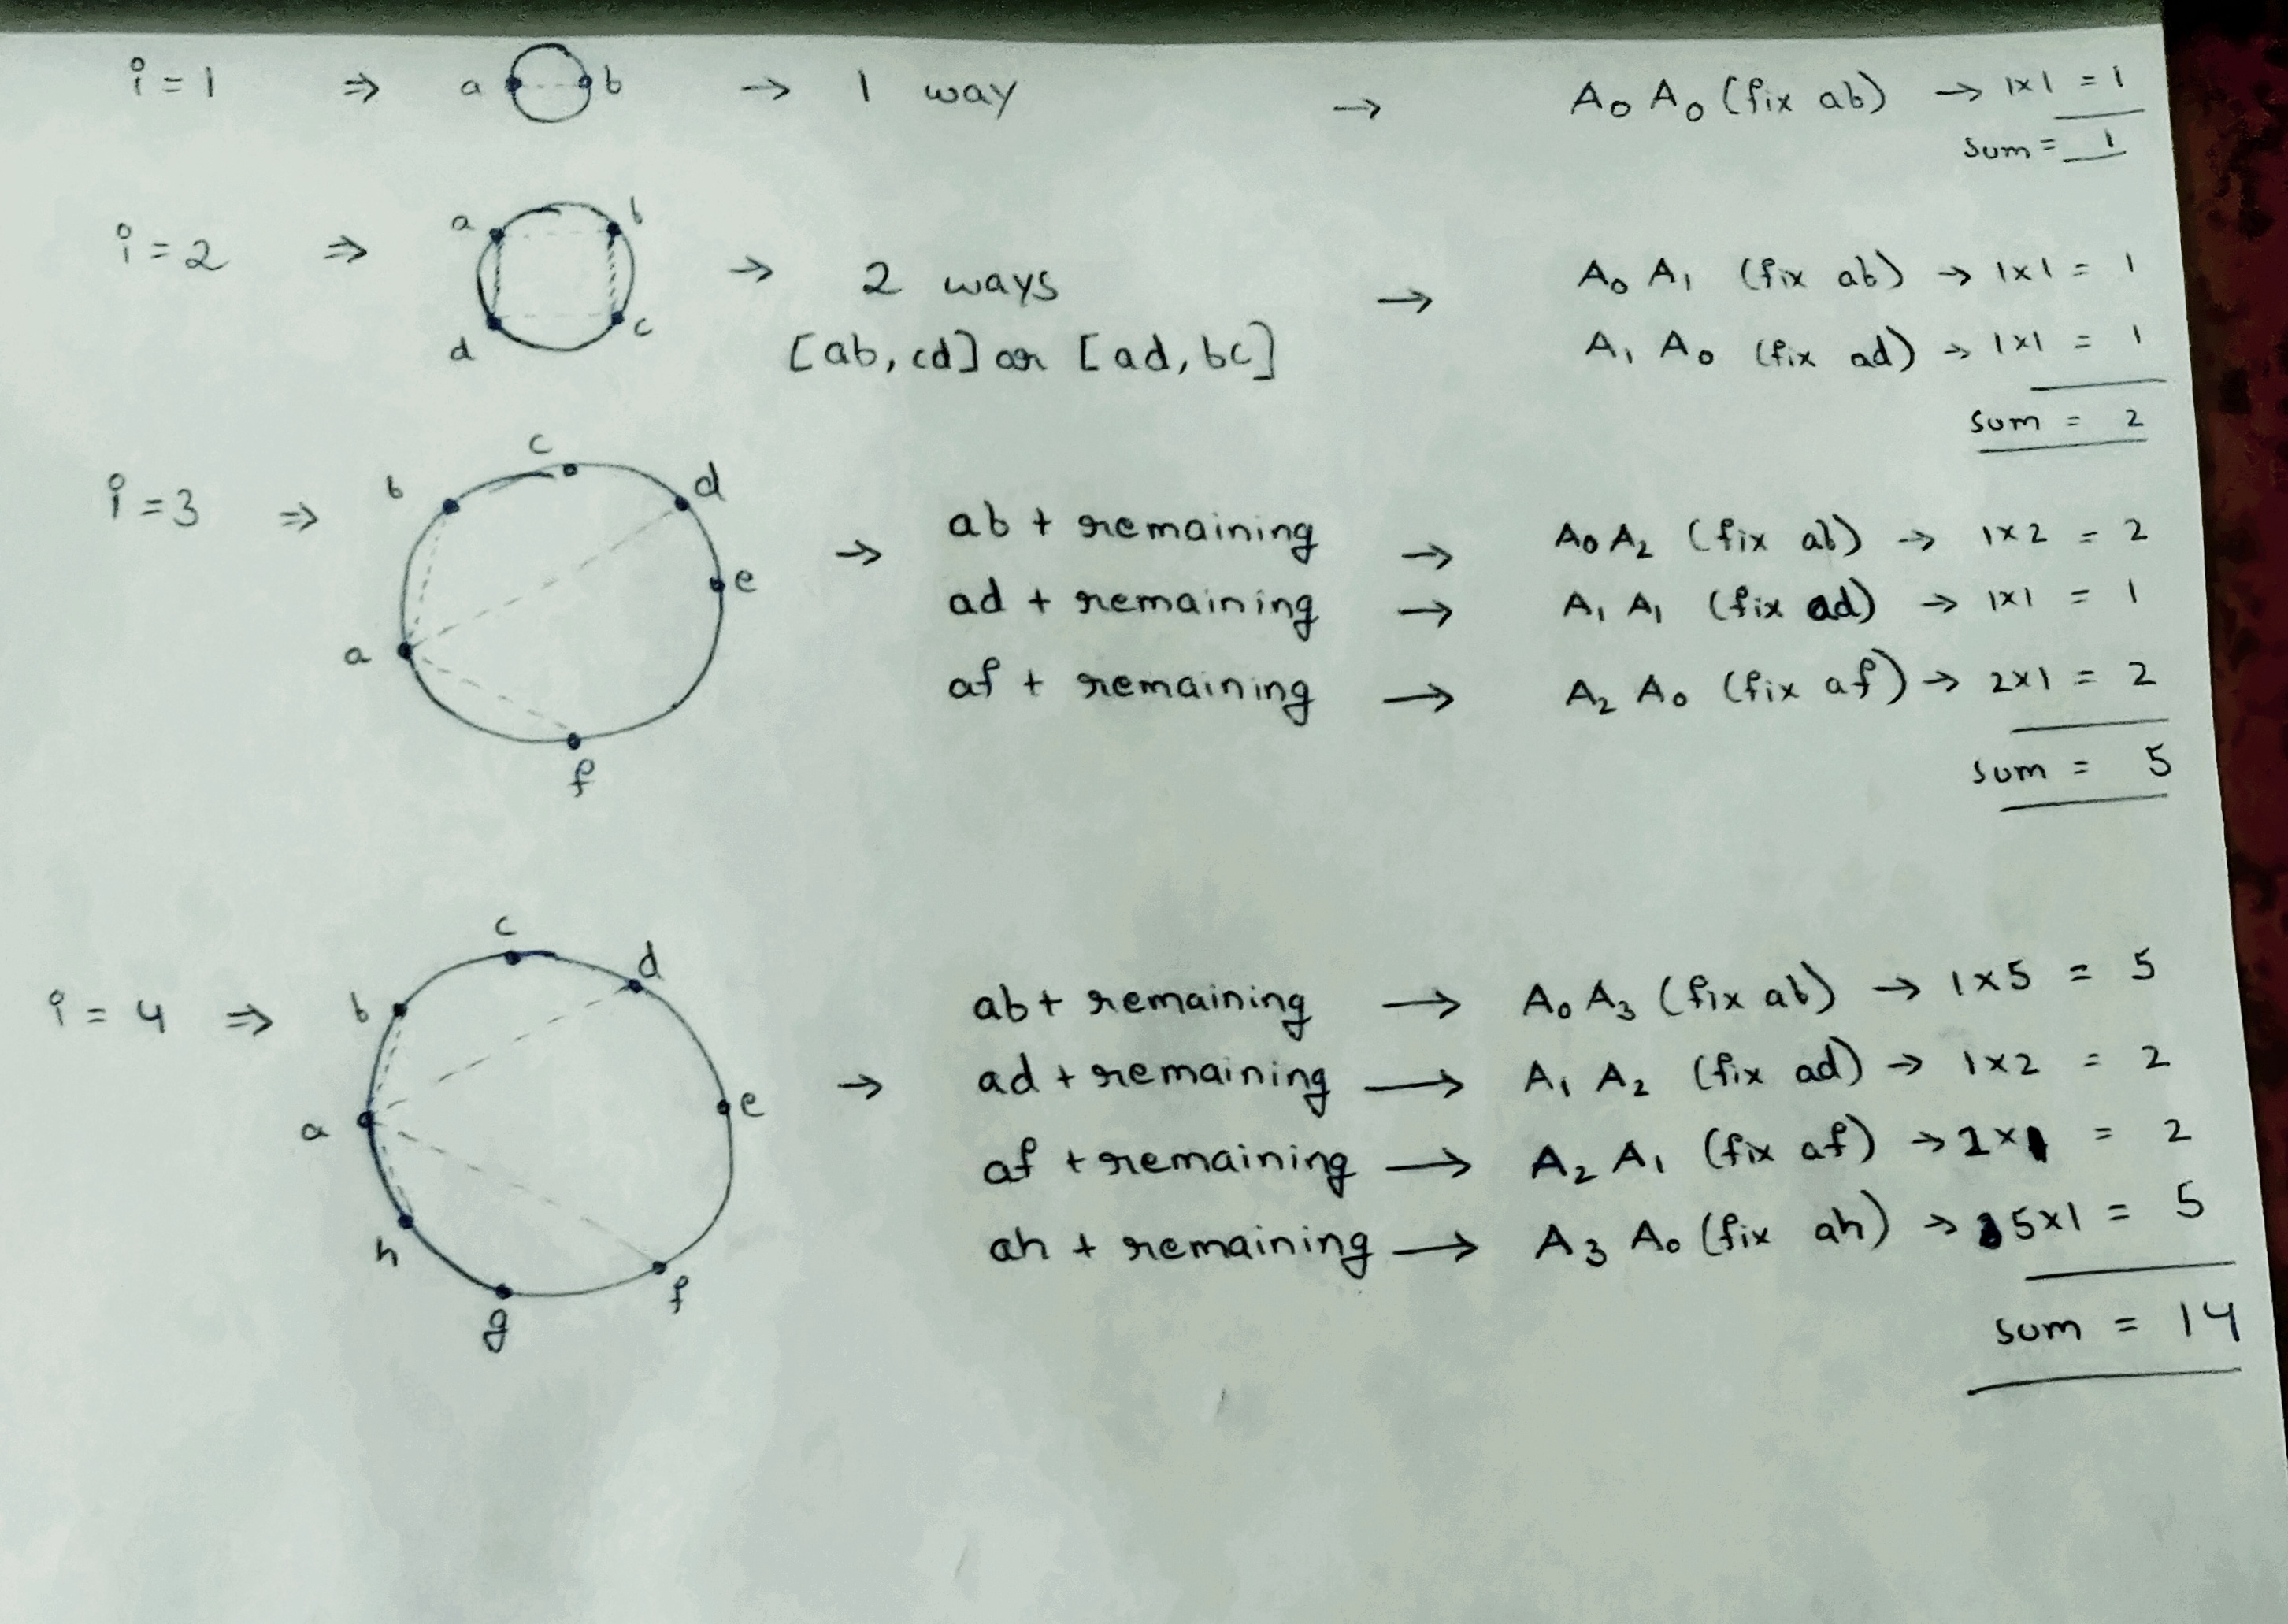 i = 1 ⇒ a b → 1 way → A₀ A₀ (fix ab) → 1×1 = 1
sum = 1
i = 2 ⇒ a b c d → 2 ways → A₀ A₁ (fix ab) → 1×1 = 1
[ab, cd] or [ad, bc] A₁ A₀ (fix ad) → 1×1 = 1
sum = 2
i = 3 ⇒ a b c d e f → ab + remaining → A₀ A₂ (fix ab) → 1×2 = 2
ad + remaining → A₁ A₁ (fix ad) → 1×1 = 1
af + remaining → A₂ A₀ (fix af) → 2×1 = 2
sum = 5
i = 4 ⇒ a b c d e f g h → ab + remaining → A₀ A₃ (fix ab) → 1×5 = 5
ad + remaining → A₁ A₂ (fix ad) → 1×2 = 2
af + remaining → A₂ A₁ (fix af) → 2×1 = 2
ah + remaining → A₃ A₀ (fix ah) → 5×1 = 5
sum = 14